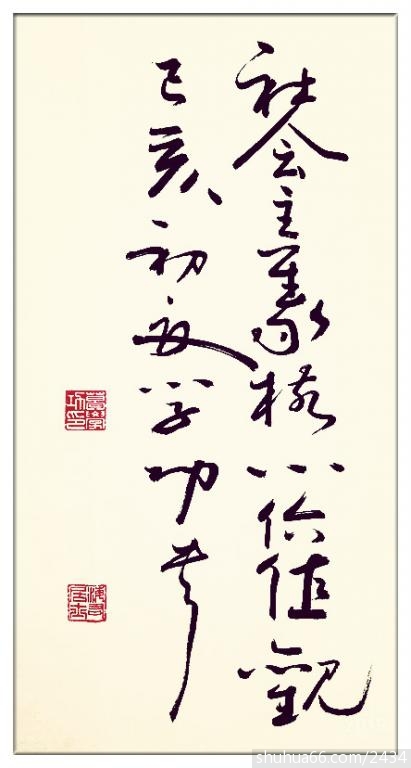 社会主義核心价值觀
己亥初夏学功书
學功印
shuhua66.com/2434